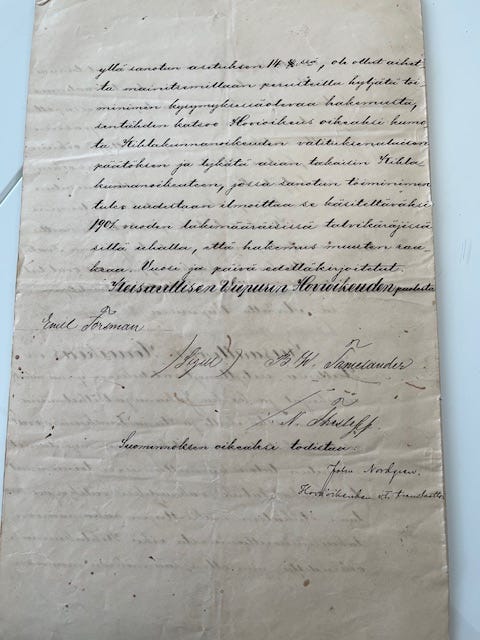 yllä sanotun asetuksen 14 §:ssä, ole ollut aihet-
ta mainitsemillaan perusteilla hyljätä toi
minimen kysymyksessäolevaa hakemusta,
sentähden katsoo Hovioikeus oikeaksi kumo
ta Kihlakunnanoikeuden valituksenalaisen
päätöksen ja lykätä asian takaisin Kihla-
kunnanoikeuteen, jossa sanotun toiminimen
tulee uudestaan ilmoittaa se käsiteltäväksi
1901 vuoden lakimääräisissä talvikäräjissä
sillä uhalla, että hakemus muuten rau
keaa. Vuosi ja päivä edelläkirjoitetut.
Keisarillisen Viipurin Hovioikeuden puolesta
Emil Forsman
(Sigill) B W Tamelander
N.
Suomennoksen oikeaksi todistaa:
John Nordgren.
Hovioikeuden